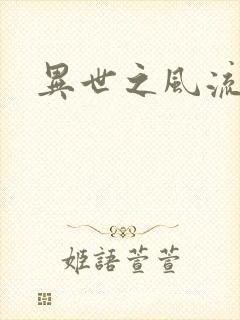 異世之風流
姬語萱萱